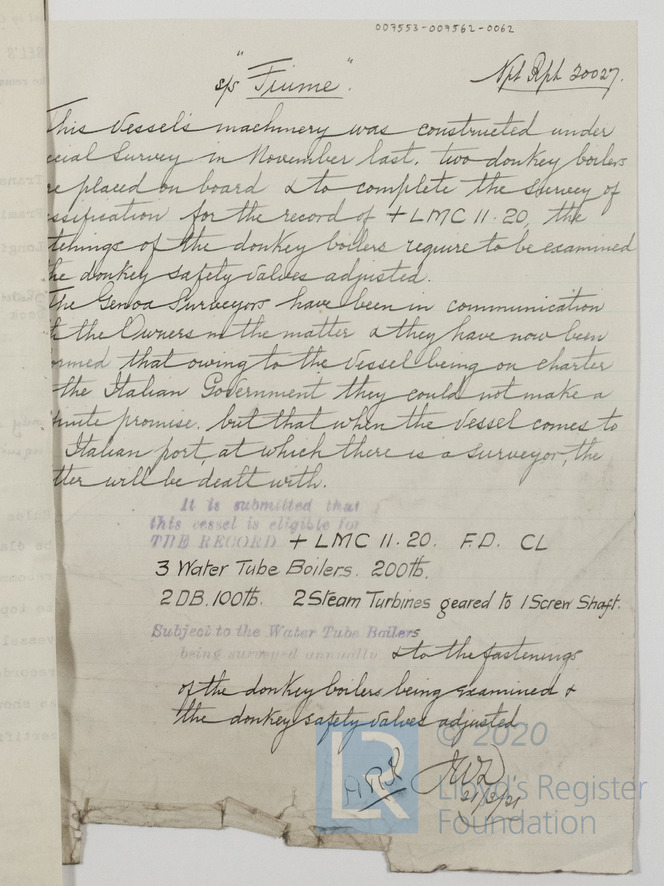 007553-007562-0062
s/s "Fiume". Npl Rpt 20027.
This Vessel's machinery was constructed under
ecial Survey in November last. two donkey boilers
re placed on board & to complete the survey of
ssification for the record of + LMC 11·20, the
tenings of the donkey boilers require to be examined
he donkey safety valves adjusted.
The Genoa Surveyors have been in communication
the Owners on the matter & they have now been
ormed that owing to the Vessel being on charter
the Italian Government they could not make a
inite promise. but that when the Vessel comes to
Italian port, at which there is a surveyor, the
tter will be dealt with.
It is submitted that
this vessel is eligible for
THE RECORD + LMC 11·20. F.D. CL
3 Water Tube Boilers. 200lb.
2 DB. 100lb. 2 Steam Turbines geared to 1 Screw Shaft.
Subject to the Water Tube Boilers
being surveyed annually & to the fastenings
of the donkey boilers being examined &
the donkey safety valves adjusted
21/3/21
© 2020
LR
Lloyd's Register
Foundation